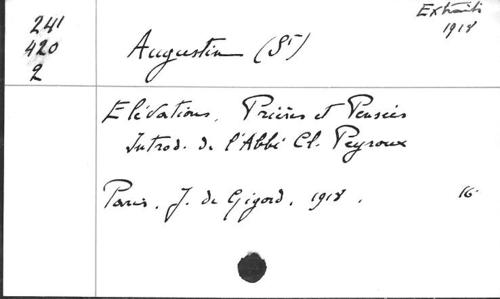 Extraits
1918
241
420
2
Augustin (St)
Elévations, Prières et Pensées
Introd. de l'Abbé Cl. Peyroux
Paris, J. de Gigord, 1918. 16